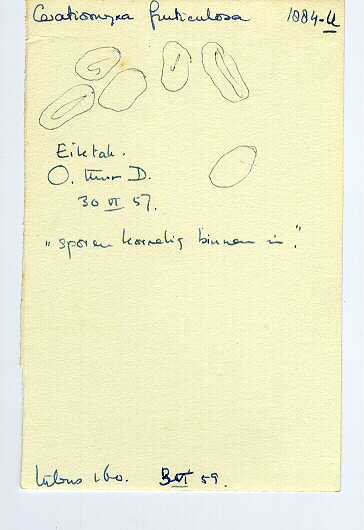 Ceratiomyxa fruticulosa 1884-U
Eiktak.
O. D.
30 VI 57.
"sporen korrelig binnen in".
tubus 160. 3 VI 59.